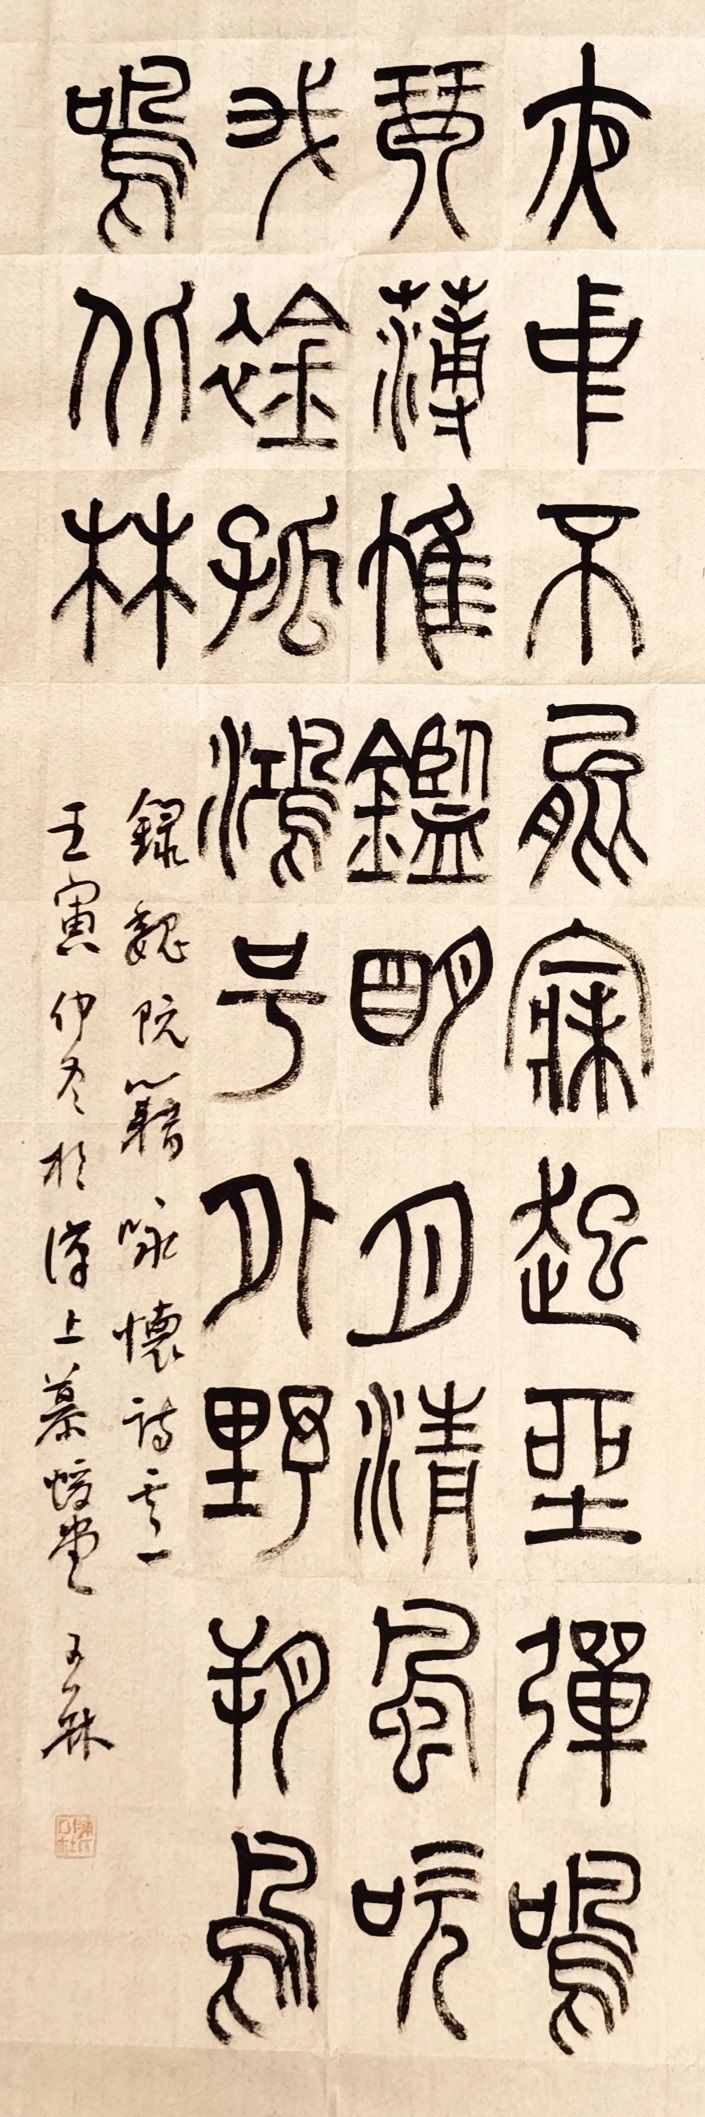 夜中不能寐起坐彈鳴
琴薄帷鑑明月清風吹
我襟孤鴻号外野朔鳥
鳴北林
錄魏阮籍咏懷詩其一
壬寅仲冬於漢上慕堂